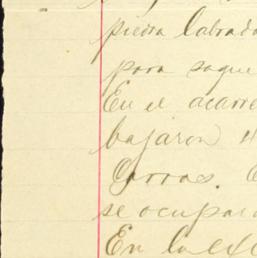 piedra labrada
para saque
En el acarre
bajaron
Carros.
se ocuparo
En la ex